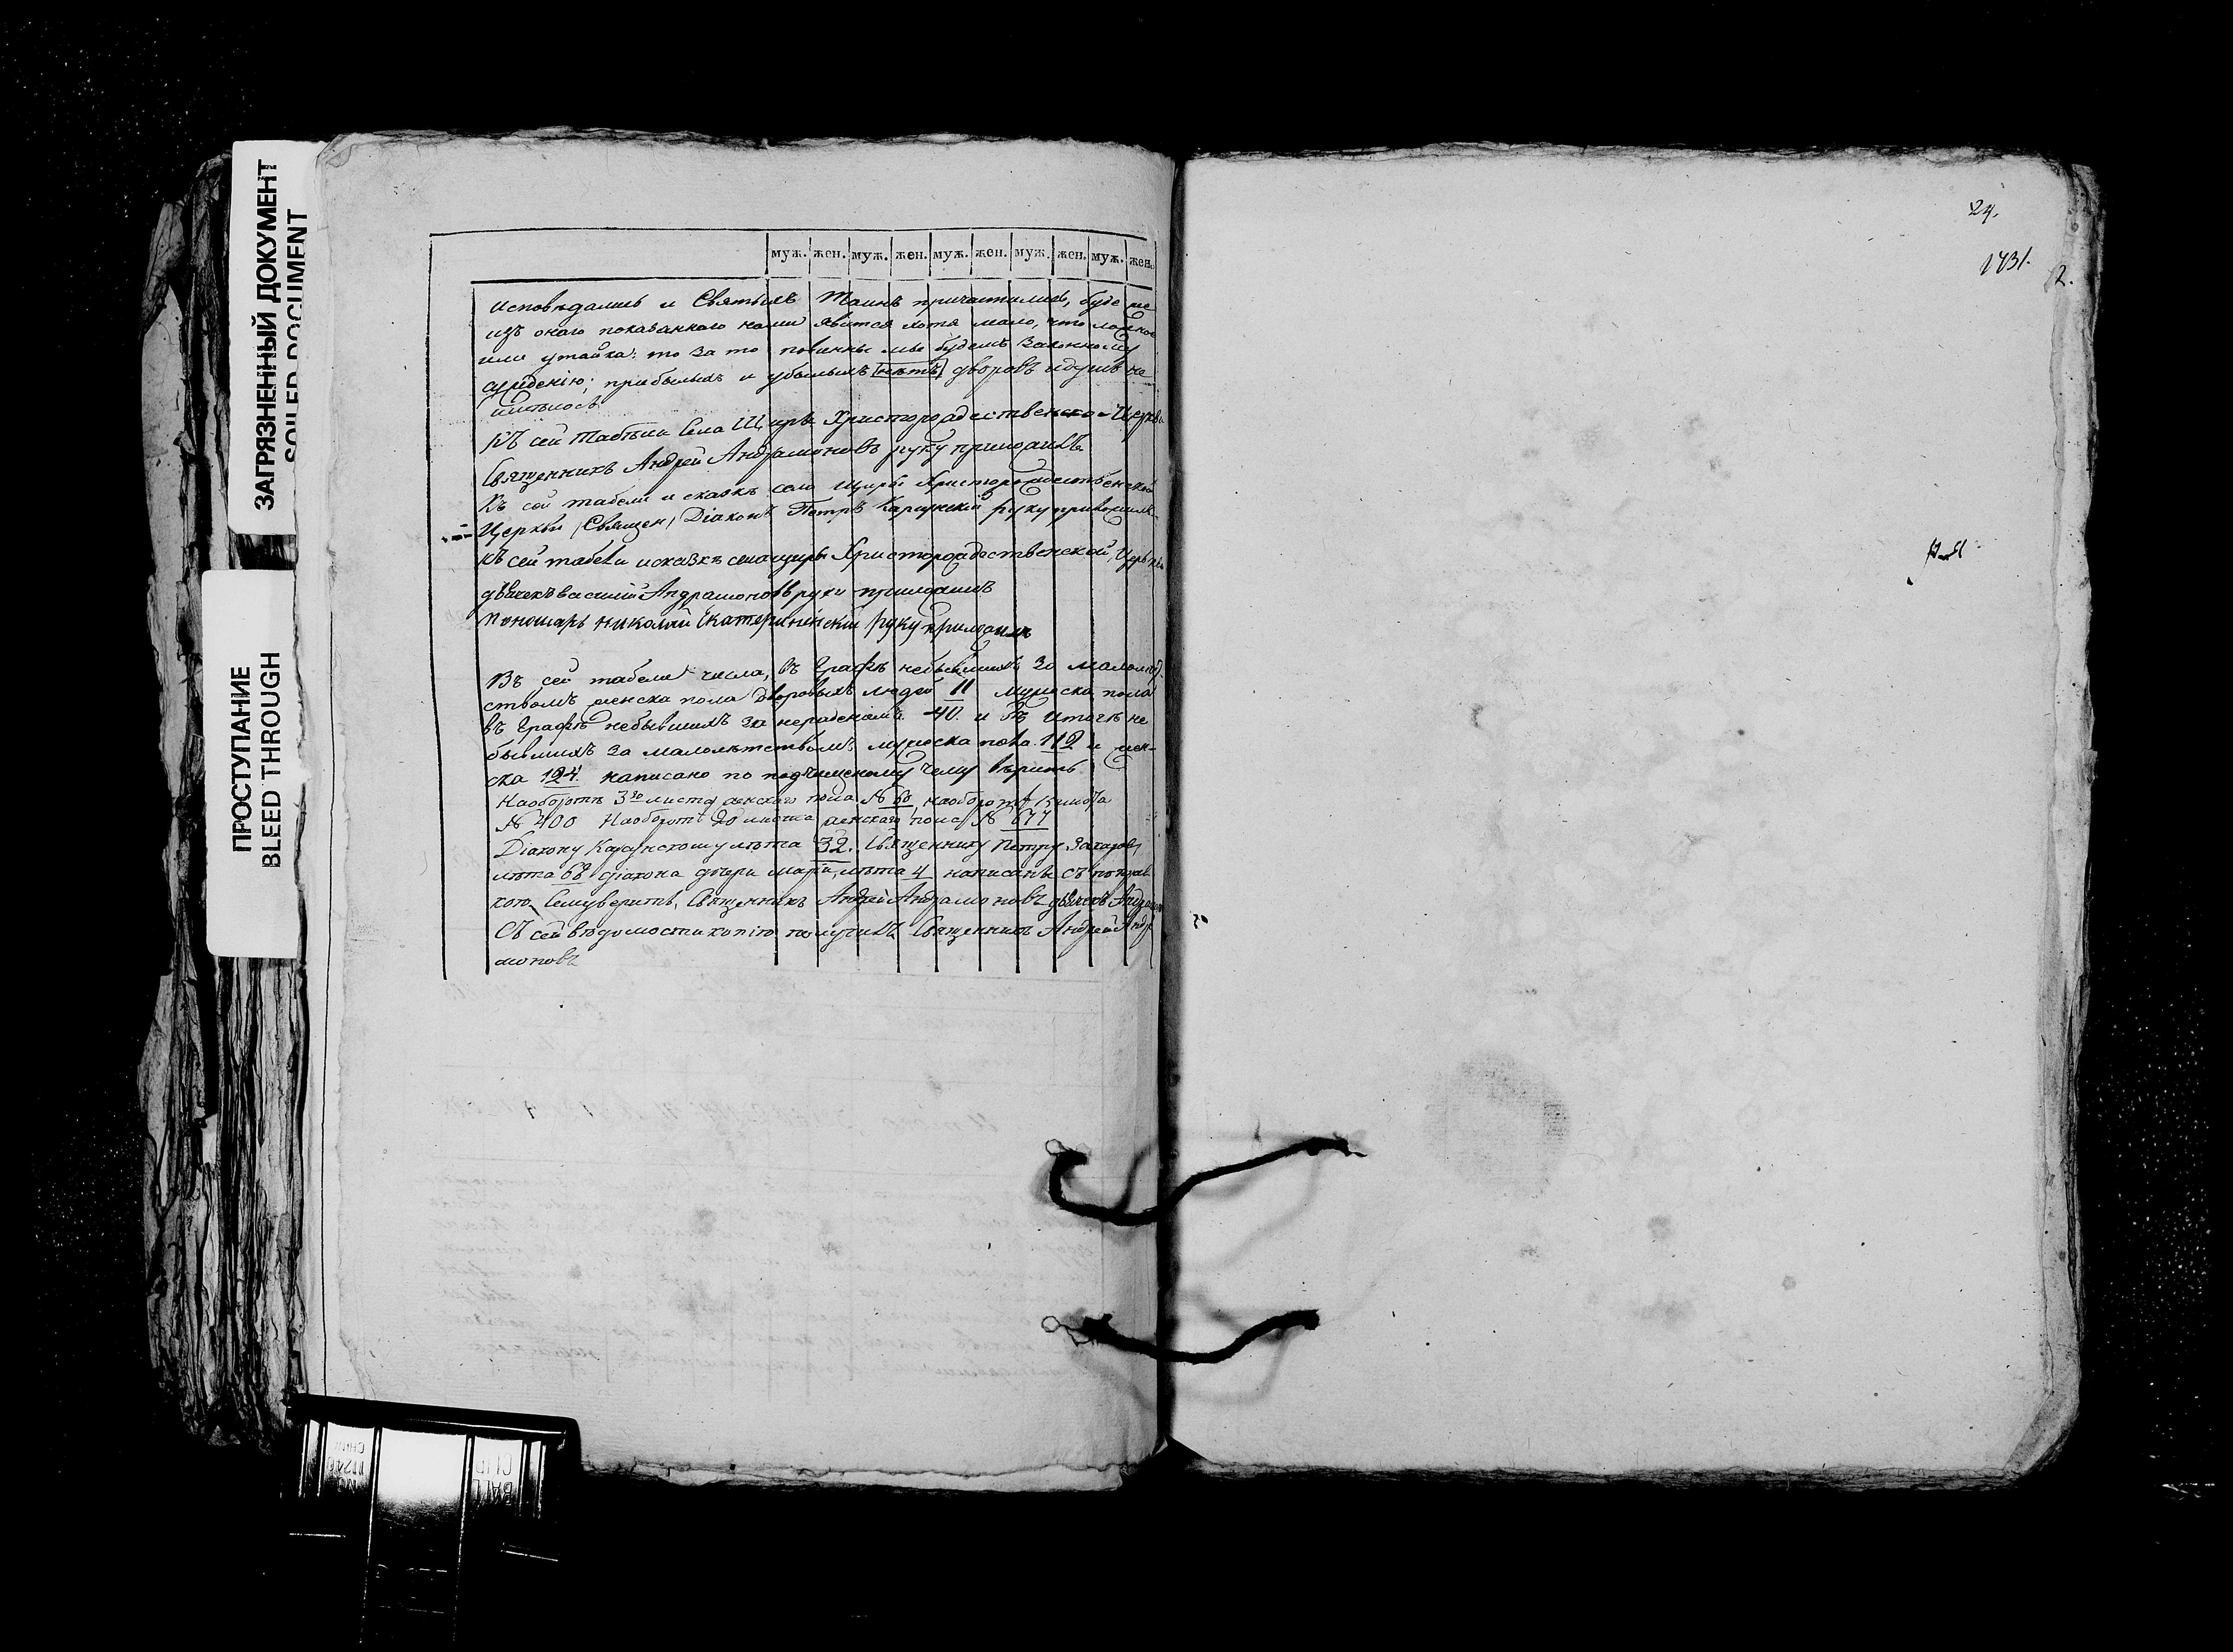 ЗАГРЯЗНЕННЫЙ ДОКУМЕНТ
SOILED DOCUMENT
ПРОСТУПАНИЕ
BLEED THROUGH
муж. жен. муж. жен. муж. жен. муж. жен. муж. жен.
исповѣдались и Святыхъ Таинъ причастились, буде же
изъ онаго показаннаго нами явится хотя мало, что ложное
или утайка: то за то повинны мы будемъ законному
сужденію; прибылыхъ и убылыхъ нѣтъ дворовъ и душъ не
имѣлось
Къ сей табели Села Щиръ Христорождественской Церкви
Священникъ Андрей Андрамоновъ руку приложилъ
Къ сей табели и сказкѣ села Щиры Христорождественской
Церкви Священ Діаконъ Петръ руку приложилъ
Къ сей табели и сказкѣ села щиры Христорождественской Церкви
дьячекъ василій Андрамоновъ руку приложилъ
Пономарь николай Екатерининскій руку приложилъ
Въ сей табели числа, въ Графѣ небывшихъ за малолѣт
ствомъ женска пола дворовыхъ людей 11 мужска пола
въ Графѣ небывшихъ за нераденіемъ 40. и въ итогѣ не
бывшихъ за малолѣтствомъ мужска пола 112 и жен-
ска 124. написано по подчищеному чему вѣрить
Наоборотѣ 3го листа женскаго пола № 60 наоборотѣ листа
№ 400 Наоборотѣ 20 листа женскаго пола № 677
Діакону лѣта 32. Священнику Петру Захарову
лѣта 68 діакона дчери маріи лѣта 4 написаны съ поправ
кою Семуверить, Священникъ Андрей Андрамоновъ дьячекъ
Съ сей вѣдомости копію получилъ Священникъ Андрей Андра
моновъ
24.
1731.
2.